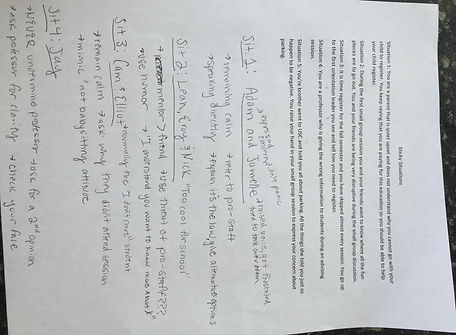 Sticky Situations
Situation 1: You are a parent that is quiet upset and does not understand why you cannot go with your
child to register. You keep saying that you are paying for this education so you should be able to help
your child register.
Situation 2: During the first small group session you and your friends want to know where all the fun
places are to go out. You and your friends are being very disruptive during the small group discussion.
Situation 3: It is time register for the fall semester and you have skipped almost every session. You go up
to the first orientation leader you see and tell him you need to register.
Situation 4: You are a professor who is giving the wrong information to students during an advising
session.
Situation 5: You're brother went to USC and told you all about parking. All the things she told you just so
happen to be negative. You raise your hand in your small group session to express your concern about
parking.
Sit 1: Adam and
→ remaining calm → refer to pro-staff
→ speaking directly → explain it's the law, give alternative options
Sit 2: Leah, Greg, & Nick "70,000 for school"
→ mentor > friend → use threat of pro-staff???
→ use humor → "I understand you want to know more about X"
Sit 3: Cam & Elliot
→ remain calm → ask why they didn't attend session
→ mimic "not babysitting" attitude
Sit 4: Jay
→ NEVER undermine professor → ask for a 2nd opinion
→ ask professor for clarity → check your face